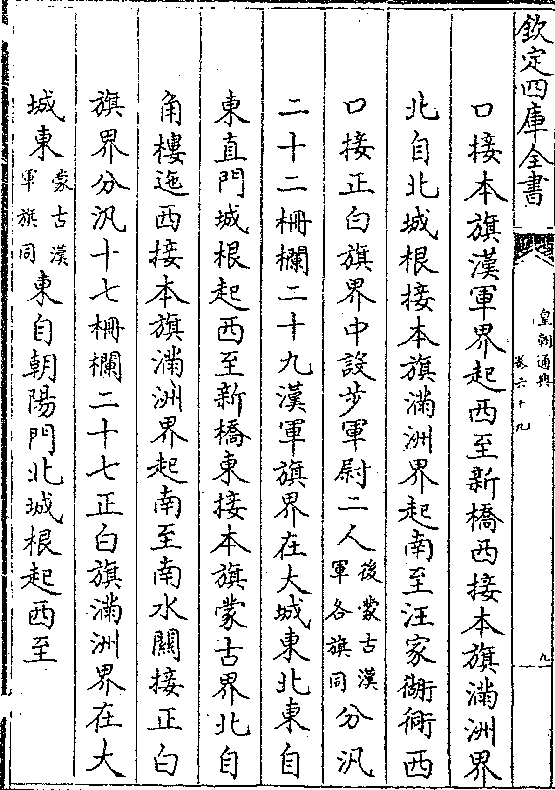 欽定四庫全書
皇朝通典
卷六十九
九
口接本旗漢軍界起西至新橋西接本旗滿洲界
北自北城根接本旗滿洲界起南至汪家衚衕西
口接正白旗界中設步軍尉二人後蒙古漢軍各旗同分汎
二十二柵欄二十九漢軍旗界在大城東北東自
東直門城根起西至新橋東接本旗蒙古界北自
角樓迤西接本旗滿洲界起南至南水關接正白
旗界分汎十七柵欄二十七正白旗滿洲界在大
城東蒙古漢軍旗同東自朝陽門北城根起西至